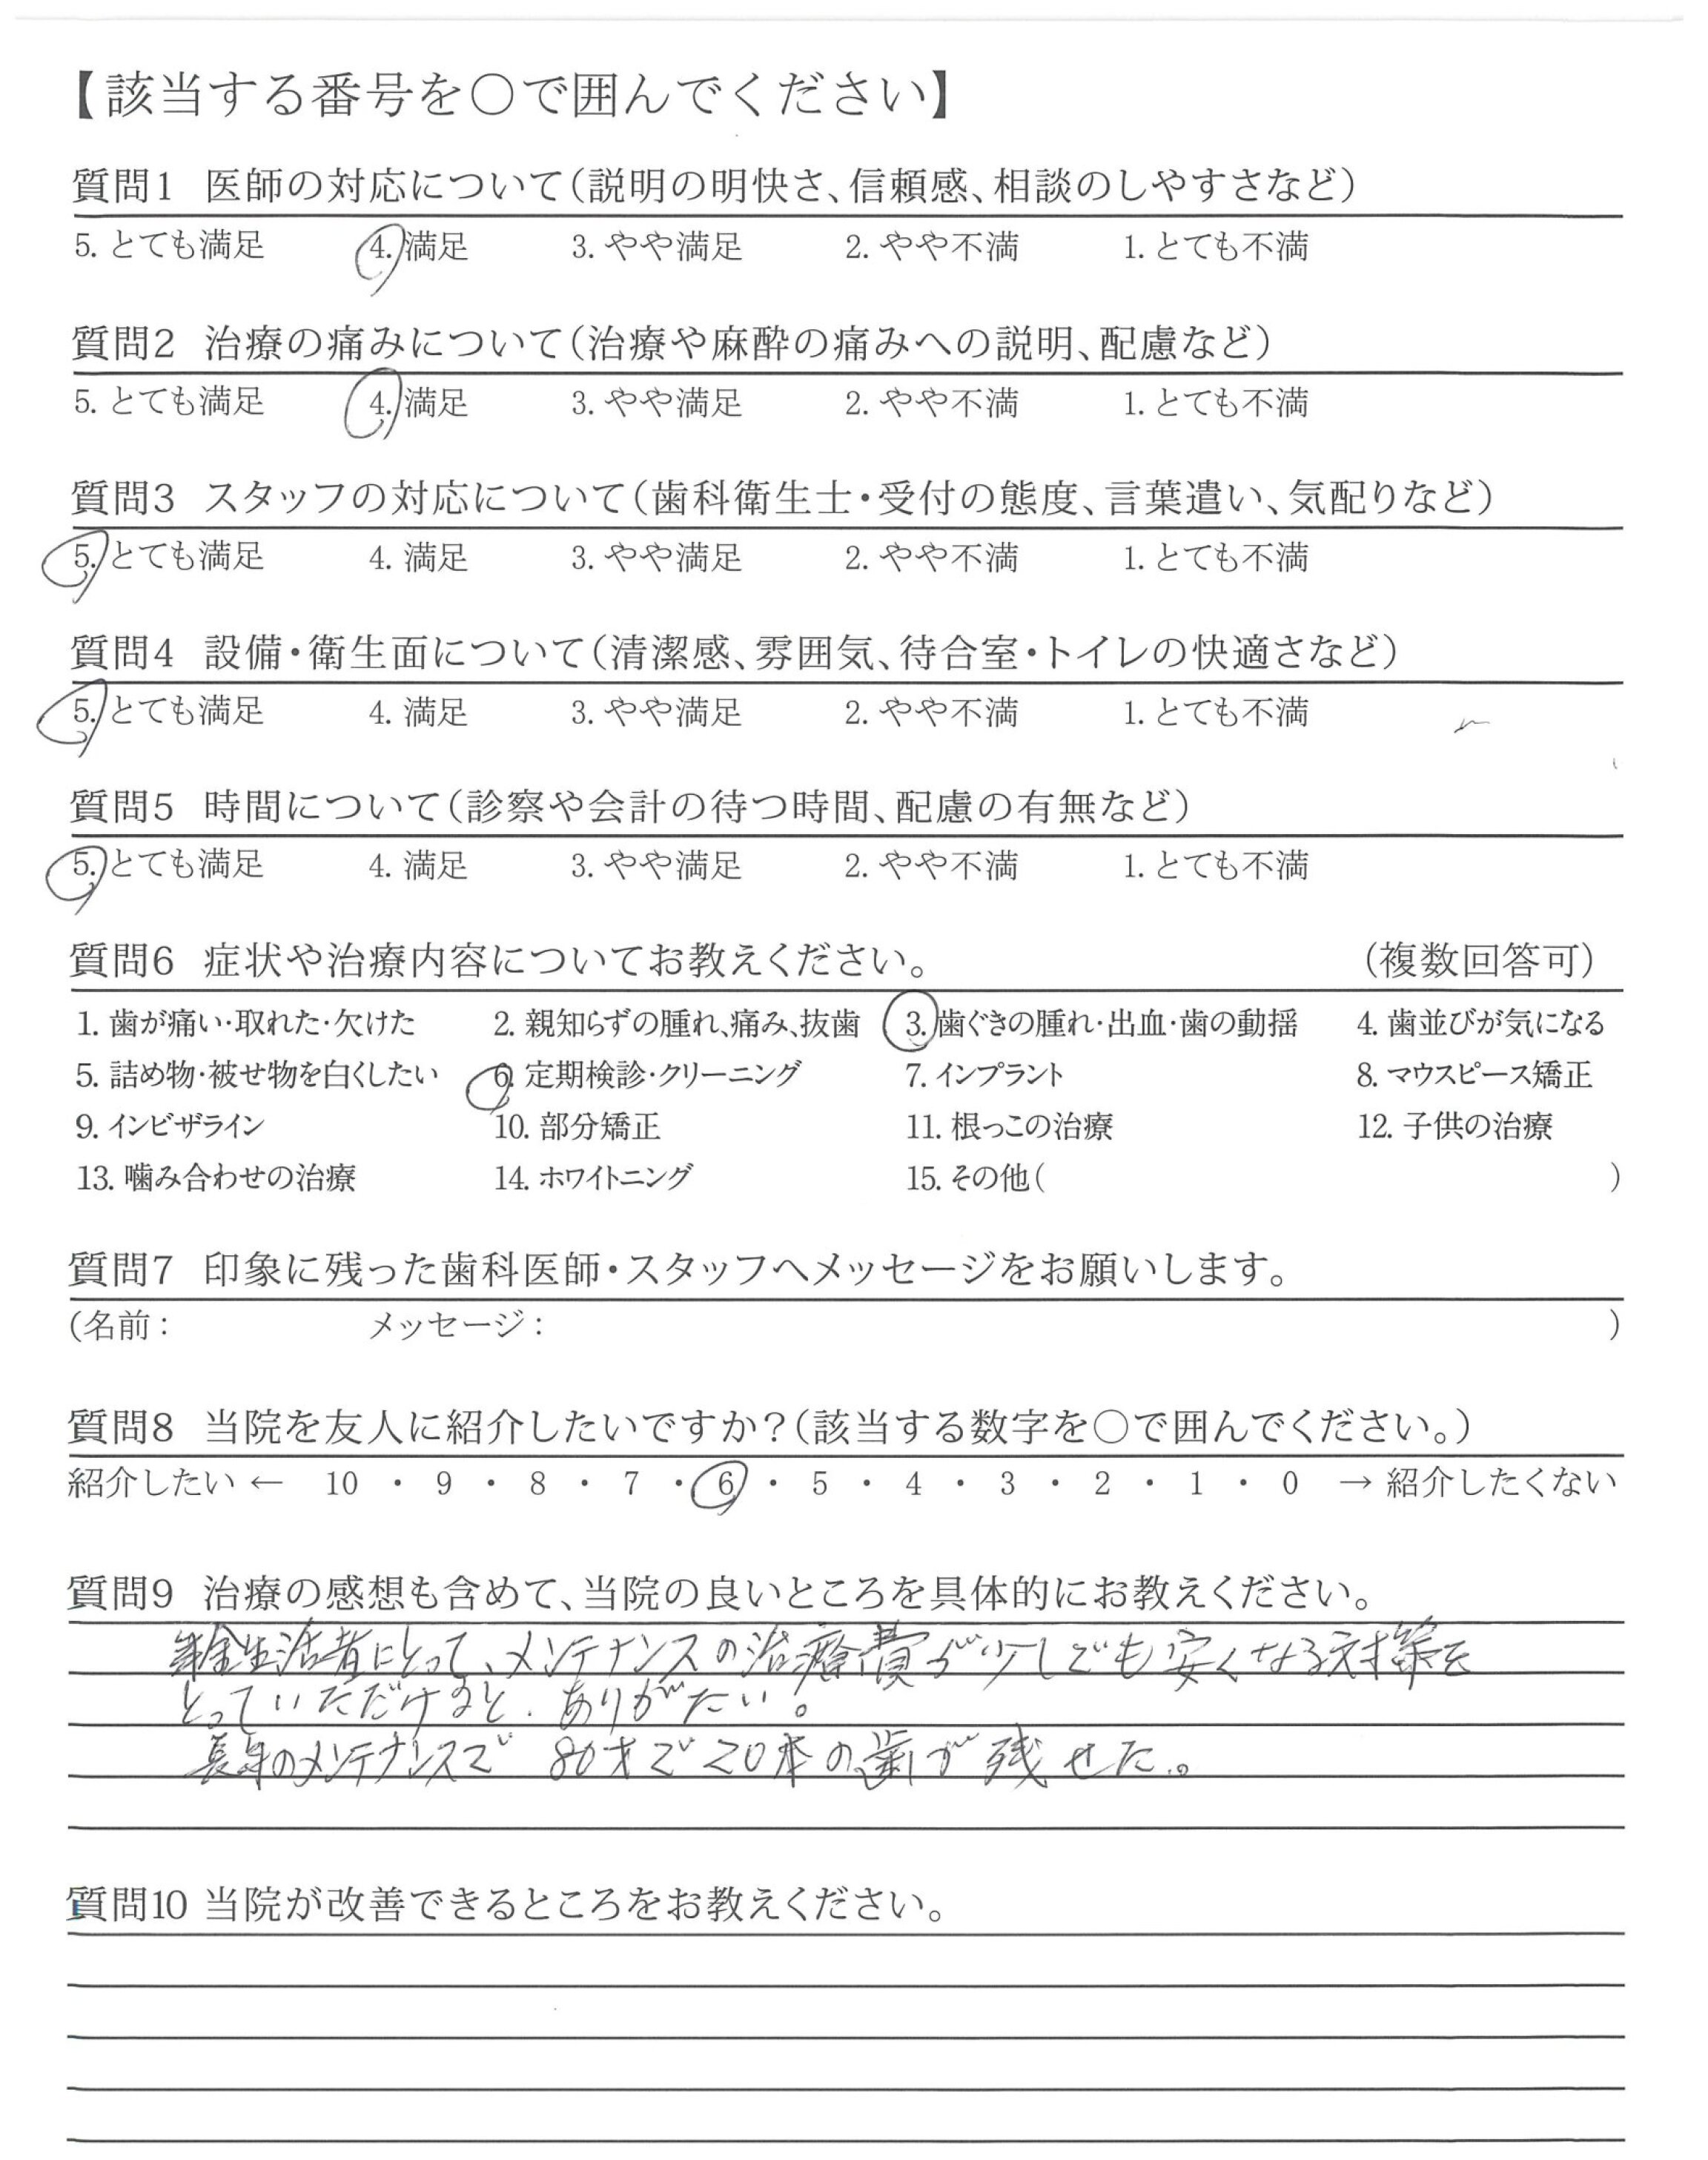 【該当する番号を○で囲んでください】
質問1 医師の対応について（説明の明快さ、信頼感、相談のしやすさなど）
5. とても満足 4. 満足 3. やや満足 2. やや不満 1. とても不満
質問2 治療の痛みについて（治療や麻酔の痛みへの説明、配慮など）
5. とても満足 4. 満足 3. やや満足 2. やや不満 1. とても不満
質問3 スタッフの対応について（歯科衛生士・受付の態度、言葉遣い、気配りなど）
5. とても満足 4. 満足 3. やや満足 2. やや不満 1. とても不満
質問4 設備・衛生面について（清潔感、雰囲気、待合室・トイレの快適さなど）
5. とても満足 4. 満足 3. やや満足 2. やや不満 1. とても不満
質問5 時間について（診察や会計の待つ時間、配慮の有無など）
5. とても満足 4. 満足 3. やや満足 2. やや不満 1. とても不満
質問6 症状や治療内容についてお教えください。 （複数回答可）
1. 歯が痛い・取れた・欠けた 2. 親知らずの腫れ、痛み、抜歯 3. 歯ぐきの腫れ・出血・歯の動揺 4. 歯並びが気になる
5. 詰め物・被せ物を白くしたい 6. 定期検診・クリーニング 7. インプラント 8. マウスピース矯正
9. インビザライン 10. 部分矯正 11. 根っこの治療 12. 子供の治療
13. 噛み合わせの治療 14. ホワイトニング 15. その他（ ）
質問7 印象に残った歯科医師・スタッフへメッセージをお願いします。
（名前： メッセージ： ）
質問8 当院を友人に紹介したいですか？（該当する数字を○で囲んでください。）
紹介したい ← 10 ・ 9 ・ 8 ・ 7 ・ 6 ・ 5 ・ 4 ・ 3 ・ 2 ・ 1 ・ 0 → 紹介したくない
質問9 治療の感想も含めて、当院の良いところを具体的にお教えください。
年金生活者にとって、メンテナンスの治療費が少しでも安くなる対策を
とっていただけると、ありがたい。
長年のメンテナンスで 80才で20本の歯が残せた。
質問10 当院が改善できるところをお教えください。